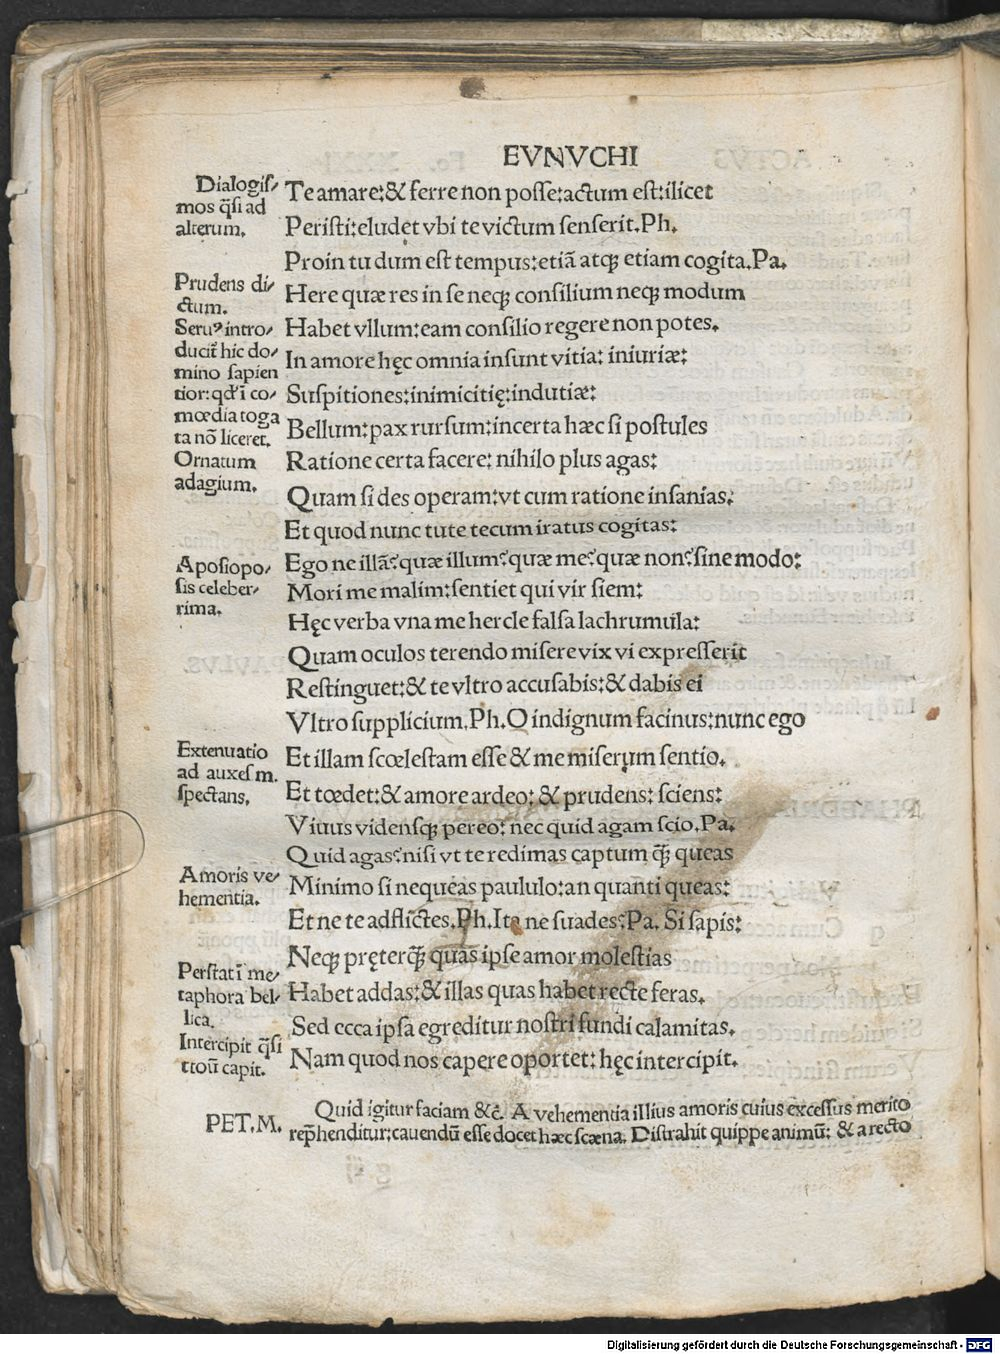 EVNVCHI
Dialogiſ⸗
mos q̃ſi ad
alterum.
Te amare:& ferre non poſſe:actum eſt:ilicet
Periſti:eludet vbi te victum ſenſerit.Ph.
Proin tu dum eſt tempus:etiã atqꝫ etiam cogita.Pa.
Prudens di⸗
ctum.
Here quæ res in ſe neqꝫ conſilium neqꝫ modum
Seruꝰ intro⸗
ducit̃ hic do⸗
mino ſapien
tior:qđ ĩ co⸗
mœdia toga
ta nõ liceret.
Habet vllum:eam conſilio regere non potes.
In amore hęc omnia inſunt vitia: iniuriæ:
Suſpitiones:inimicitię:indutiæ:
Bellum:pax rurſum:incerta hæc ſi poſtules
Ornatum
adagium.
Ratione certa facere: nihilo plus agas:
Quam ſi des operam:vt cum ratione inſanias.
Et quod nunc tute tecum iratus cogitas:
Apoſiopo⸗
ſis celeber⸗
rima.
Ego ne illã?quæ illum?quæ me?quæ non?ſine modo:
Mori me malim:ſentiet qui vir ſiem:
Hęc verba vna me hercle falſa lachrumula:
Quam oculos terendo miſere vix vi expreſſerit
Reſtinguet:& te vltro accuſabis:& dabis ei
Vltro ſupplicium.Ph.O indignum facinus:nunc ego
Extenuatio
ad auxeſ m.
ſpectans.
Et illam ſcœleſtam eſſe & me miſerum ſentio.
Et tœdet:& amore ardeo: & prudens: ſciens:
Viuus vidensqꝫ pereo: nec quid agam ſcio.Pa.
Quid agas?niſi vt te redimas captum q̃ꝫ queas
Amoris ve⸗
hementia.
Minimo ſi nequeas paululo:an quanti queas:
Et ne te adflictes.Ph.Ita ne ſuades?Pa. Si ſapis:
Neqꝫ pręterq̃ꝫ quas ipſe amor moleſtias
Perſtat ĩ me⸗
taphora bel⸗
lica.
Habet addas:& illas quas habet recte feras.
Sed ecca ipſa egreditur noſtri fundi calamitas.
Intercipit q̃ſi
ttoũ capit.
Nam quod nos capere oportet: hęc intercipit.
PET.M.
Quid igitur faciam &c̃. A vehementia illius amoris cuius exceſſus merito
rep̃henditur:cauendũ eſſe docet hæc ſcæna. Diſtrahit quippe animũ: & a recto
Digitalisierung gefördert durch die Deutsche Forschungsgemeinschaft - DFG